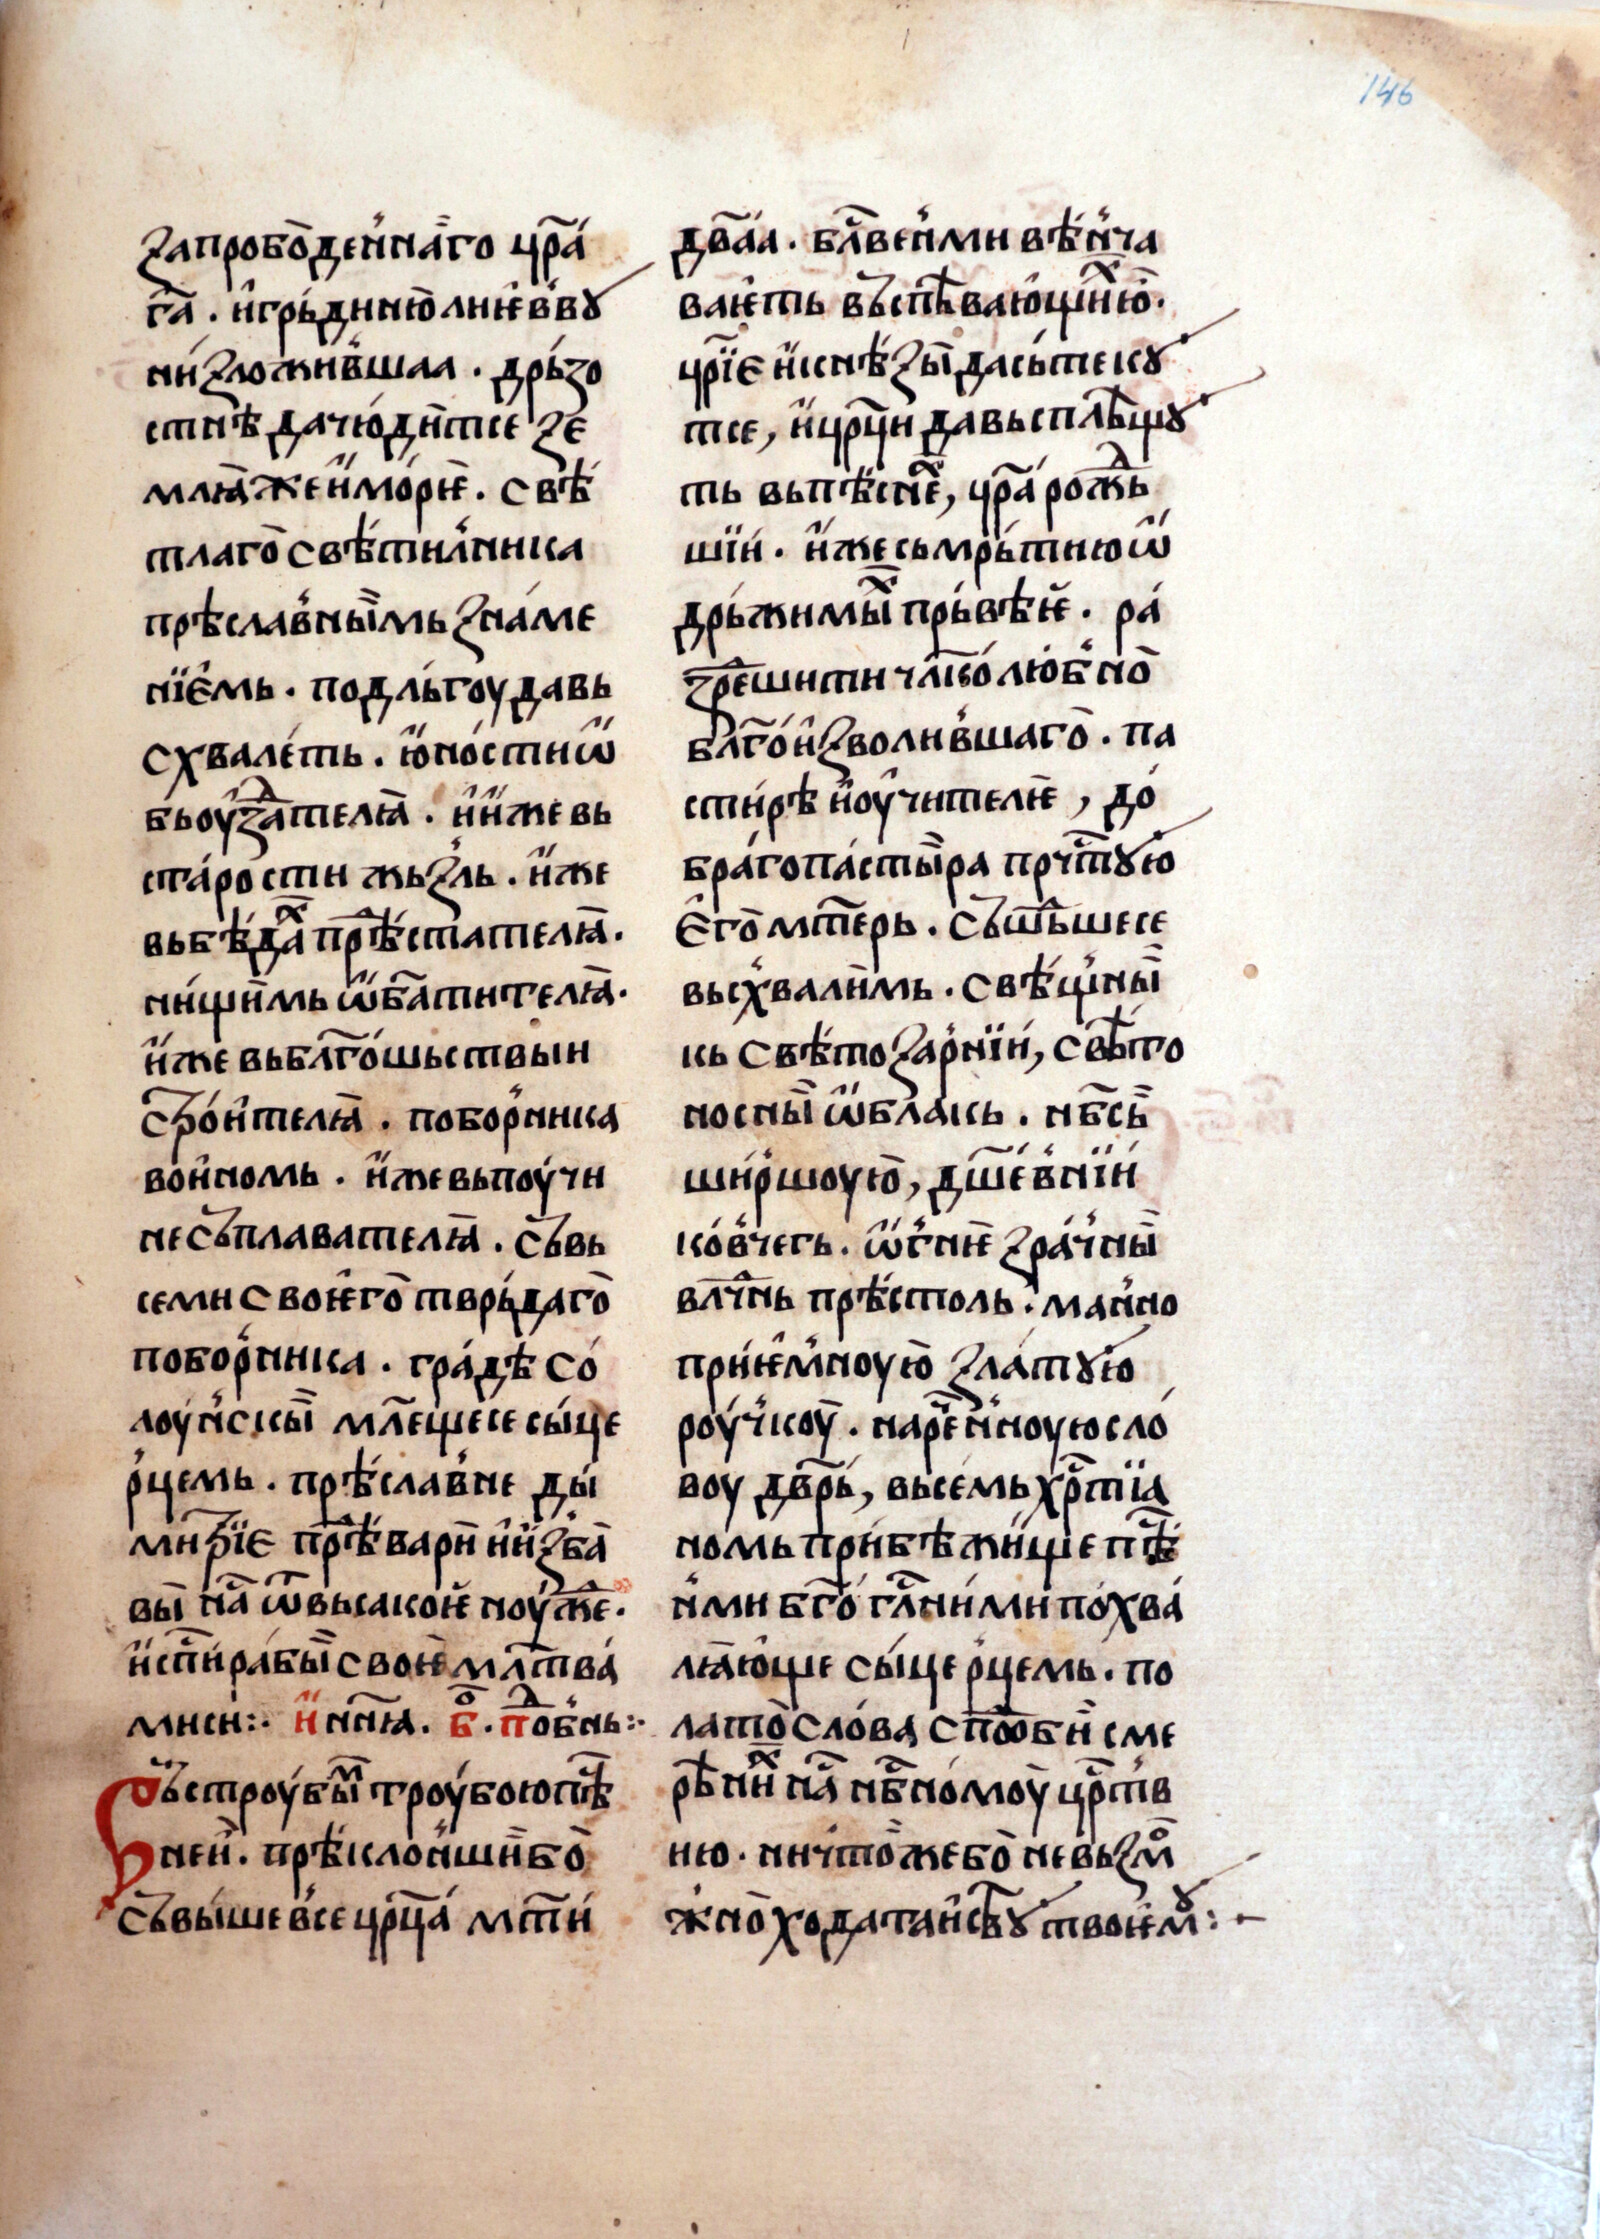 146
запробо̄деннаго цр҃а
га҃ . и грьдиню лиѥвву
низложившаа . дрьзо
стнѣ да чюдитсе зе
млꙗ же и мориѥ . свѣ
тлаго свѣтилника
прѣславнымь знаме
нїемь . по дльгоу да вь
схвалеть . юности ѡ
бьоуꙁателꙗ . и иже вь
старости жьзль . иже
вь бѣдаⷯ прѣстателꙗ .
нищимь ѡб҃атителꙗ .
иже вь бл҃гошьствы и
строителꙗ . поборника
воиномь . иже вь поучи
не съплавателꙗ . съ вь
семи своѥго тврьдаго
поборника . градѣ со
лоунскы мл҃еще се сьце
рцемь . прѣславне ди
митрїе прѣвари и изба
вы на҃ ѿ вьсакоѥ ноуже .
и сп҃и рабы своѥ мл҃тва
ми си : и нн҃ꙗ . б҃ . поⷣбнь :
Въструбым троубою пѣ
сней . прѣклоншиⷩ бо
съвыше все цр҃ца мт҃и
дв҃аа . бл҃венми вѣнча
ваѥть въспѣвающиⷯ ю .
цр҃їе и кнѣзы да сьтеку
тсе , и цр҃ци да вьсплѣщу
ть вь пѣснеⷯ , цр҃а рожⷣь
шїи . иже сьмрьтию ѡ
дрьжимыⷯ прьвѣѥ . ра
зрѣшити чл҃колюбно
бл҃го изволившаго . па
стирѣ и оучителиѥ , до
браго пастыра прч҃тую
его мт҃ерь . съшⷣьше се
вьсхвалимь . свѣщны
кь свѣтозарнїи , свѣто
носны ѡблакь . нб҃сь
ширшоую , дш҃евнїи
ковчегь . ѡгниѥ зрачны
вл҃чнь прѣстоль . манно
приѥмноую златую
роучкоу . нареченноую сло
воу дв҃рь , вьсемь хр҃тїа
номь прибѣжище пѣс
нми бг҃огл҃ними похва
лꙗюще сьце рцемь . по
лато слова сп҃ѡби сме
рѣниⷯ на҃ нб҃номоу цр҃тв
ию . ничтоже бо не възмо
жно ходатаиству твоѥму :